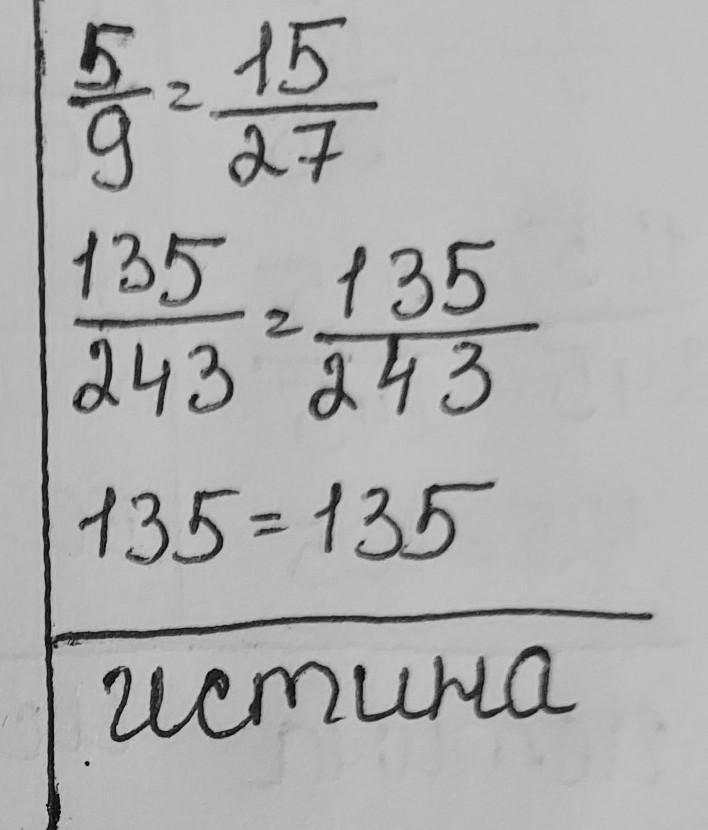 5/9 = 15/27
135/243 = 135/243
135 = 135
истина